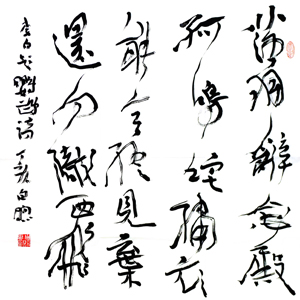 落羽辭金殿
孤鳴咤繡衣
能言終見棄
還向隴西飛
李白詩 丁亥